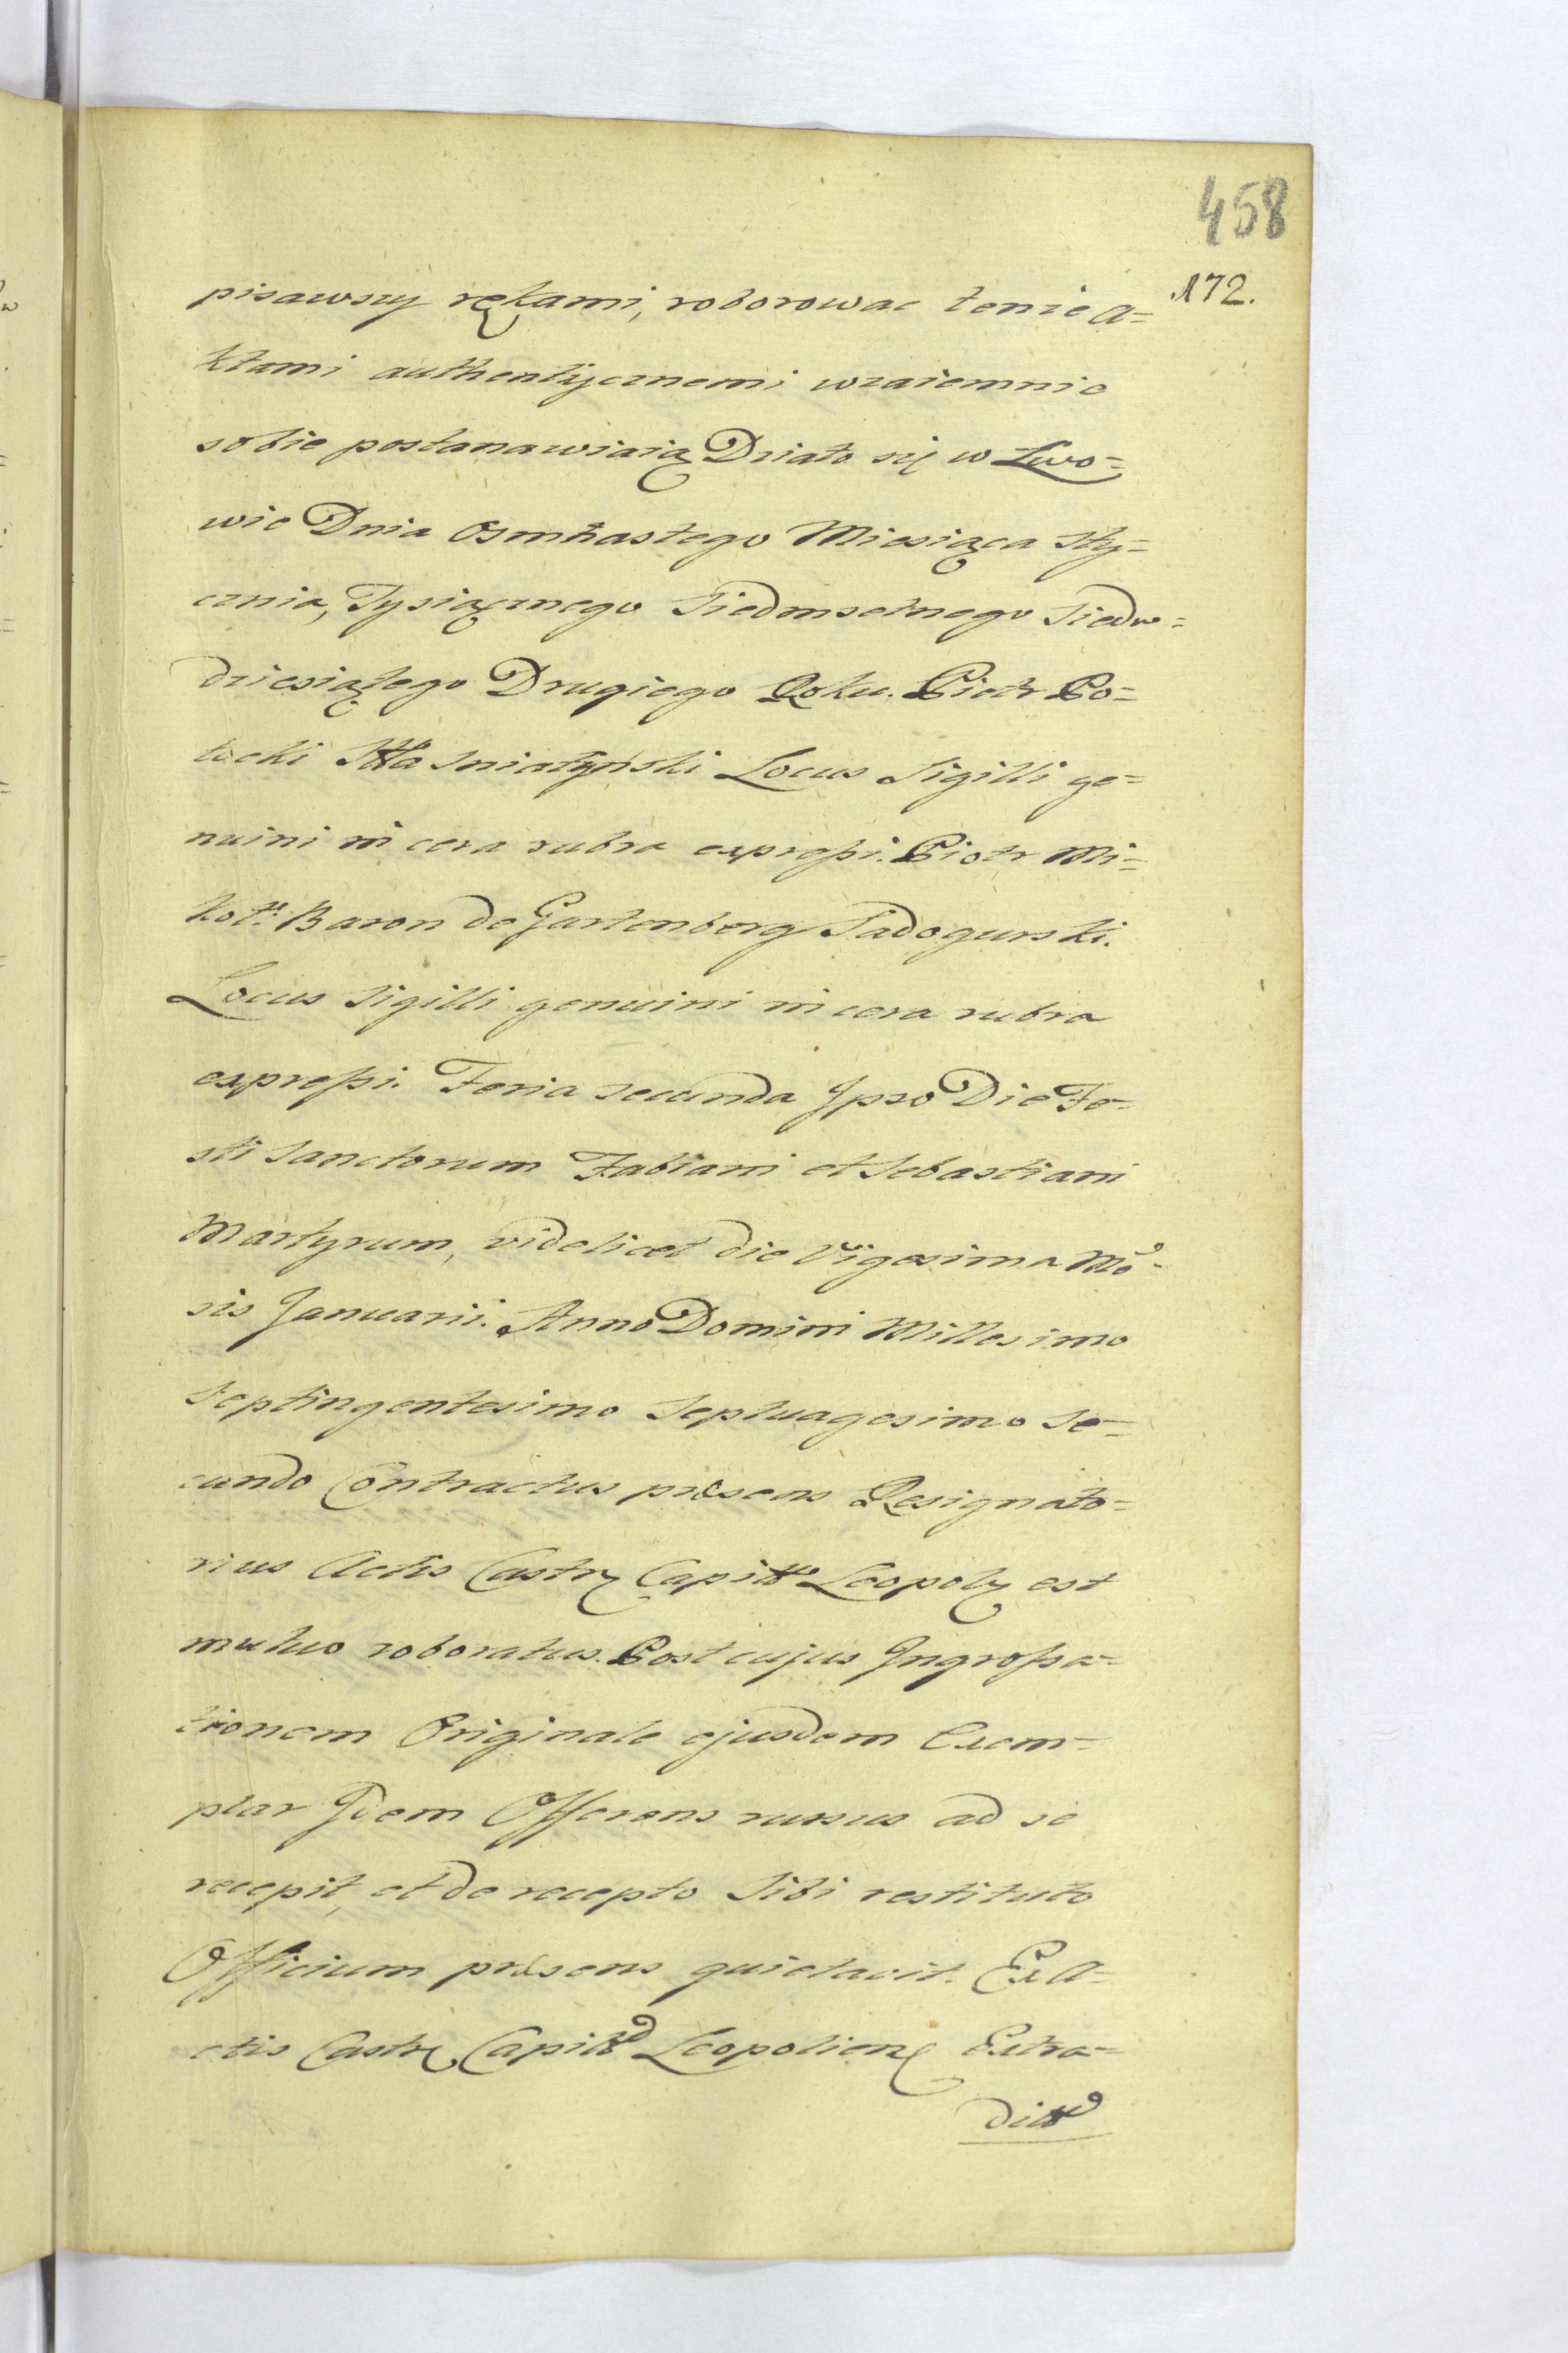 458
172.
pisawszy rękami, roborowac tenże A=
ktami authentycznemi wzaiemnie
sobie postanawiaią Działo się w Lwo=
wie Dnia Osmnastego Miesiąca Sty=
cznia, Tysiącznego Siedmsetnego Siedm=
dziesiątego Drugiego Roku. Piotr Po=
tocki Stta Sniatyński Locus Sigilli ge=
nuini in cera rubra expressi. Piotr Mi=
koł: Baron de Gartenberg Sadogurski.
Locus Sigilli genuini in cera rubra
expressi. Feria secunda Ipso Die Fe=
sti Sanctorum Fabiani et Sebastiani
Martyrum, videlicet die Vigesima Me=
sis Januarii. Anno Domini Millesimo
Septingentesimo Septuagesimo Se=
cundo Contractus præsens Resignato=
rius Actis Castr Capit Leopol est
mutuo roboratus. Post cujus Ingrossa=
tionem Originale ejusdem Exem=
plar Idem Offerens rursus ad se
recepit, et de recepto Sibi restituto
Officium præsens quietavit. Ex A=
ctis Castr Capit Leopolien Extra=
ditt